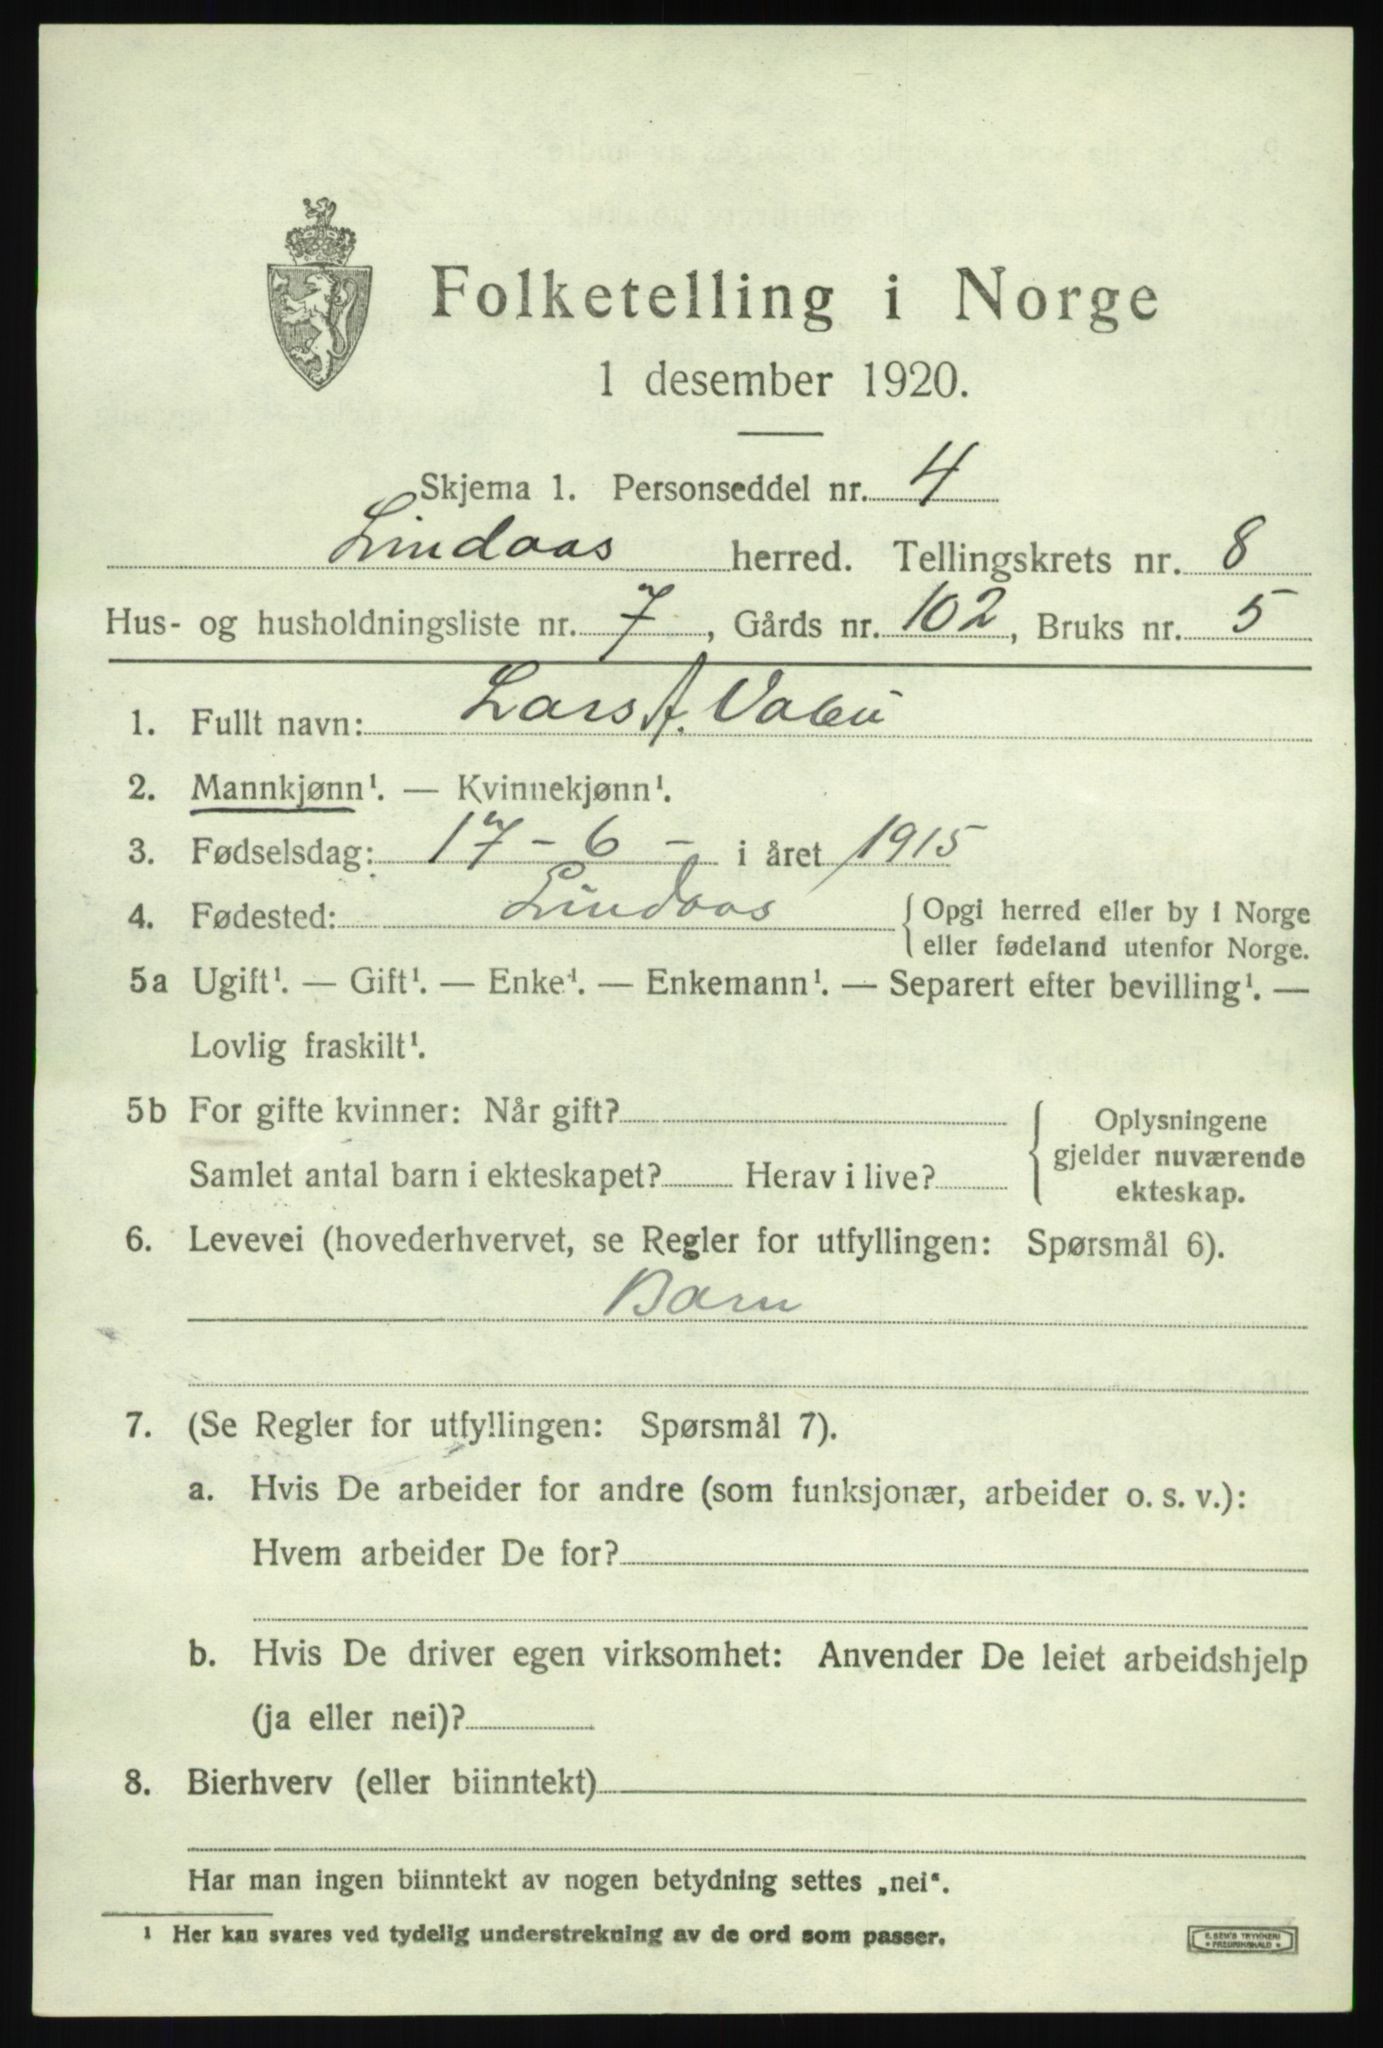 Folketelling i Norge
1 desember 1920.
Skjema 1. Personseddel nr. 4
Lindaas herred. Tellingskrets nr. 8
Hus- og husholdningsliste nr. 7, Gårds nr. 102, Bruks nr. 5
1. Fullt navn: Lars A.
2. Mannkjønn¹. — Kvinnekjønn¹.
3. Fødselsdag: 17 - 6 - i året 1915
4. Fødested: Lindaas { Opgi herred eller by i Norge
eller fødeland utenfor Norge.
5a Ugift¹. — Gift¹. — Enke¹. — Enkemann¹. — Separert efter bevilling¹. —
Lovlig fraskilt¹.
5b For gifte kvinner: Når gift? { Oplysningene
gjelder nuværende
Samlet antal barn i ekteskapet? Herav i live?
ekteskap.
6. Levevei (hovederhvervet, se Regler for utfyllingen: Spørsmål 6).
Barn
7. (Se Regler for utfyllingen: Spørsmål 7).
a. Hvis De arbeider for andre (som funksjonær, arbeider o. s. v.):
Hvem arbeider De for?
b. Hvis De driver egen virksomhet: Anvender De leiet arbeidshjelp
(ja eller nei)?
8. Bierhverv (eller biinntekt)
Har man ingen biinntekt av nogen betydning settes „nei“.
¹ Her kan svares ved tydelig understrekning av de ord som passer.
E. SEM'S TRYKKERI
• FREDRIKSHALD •